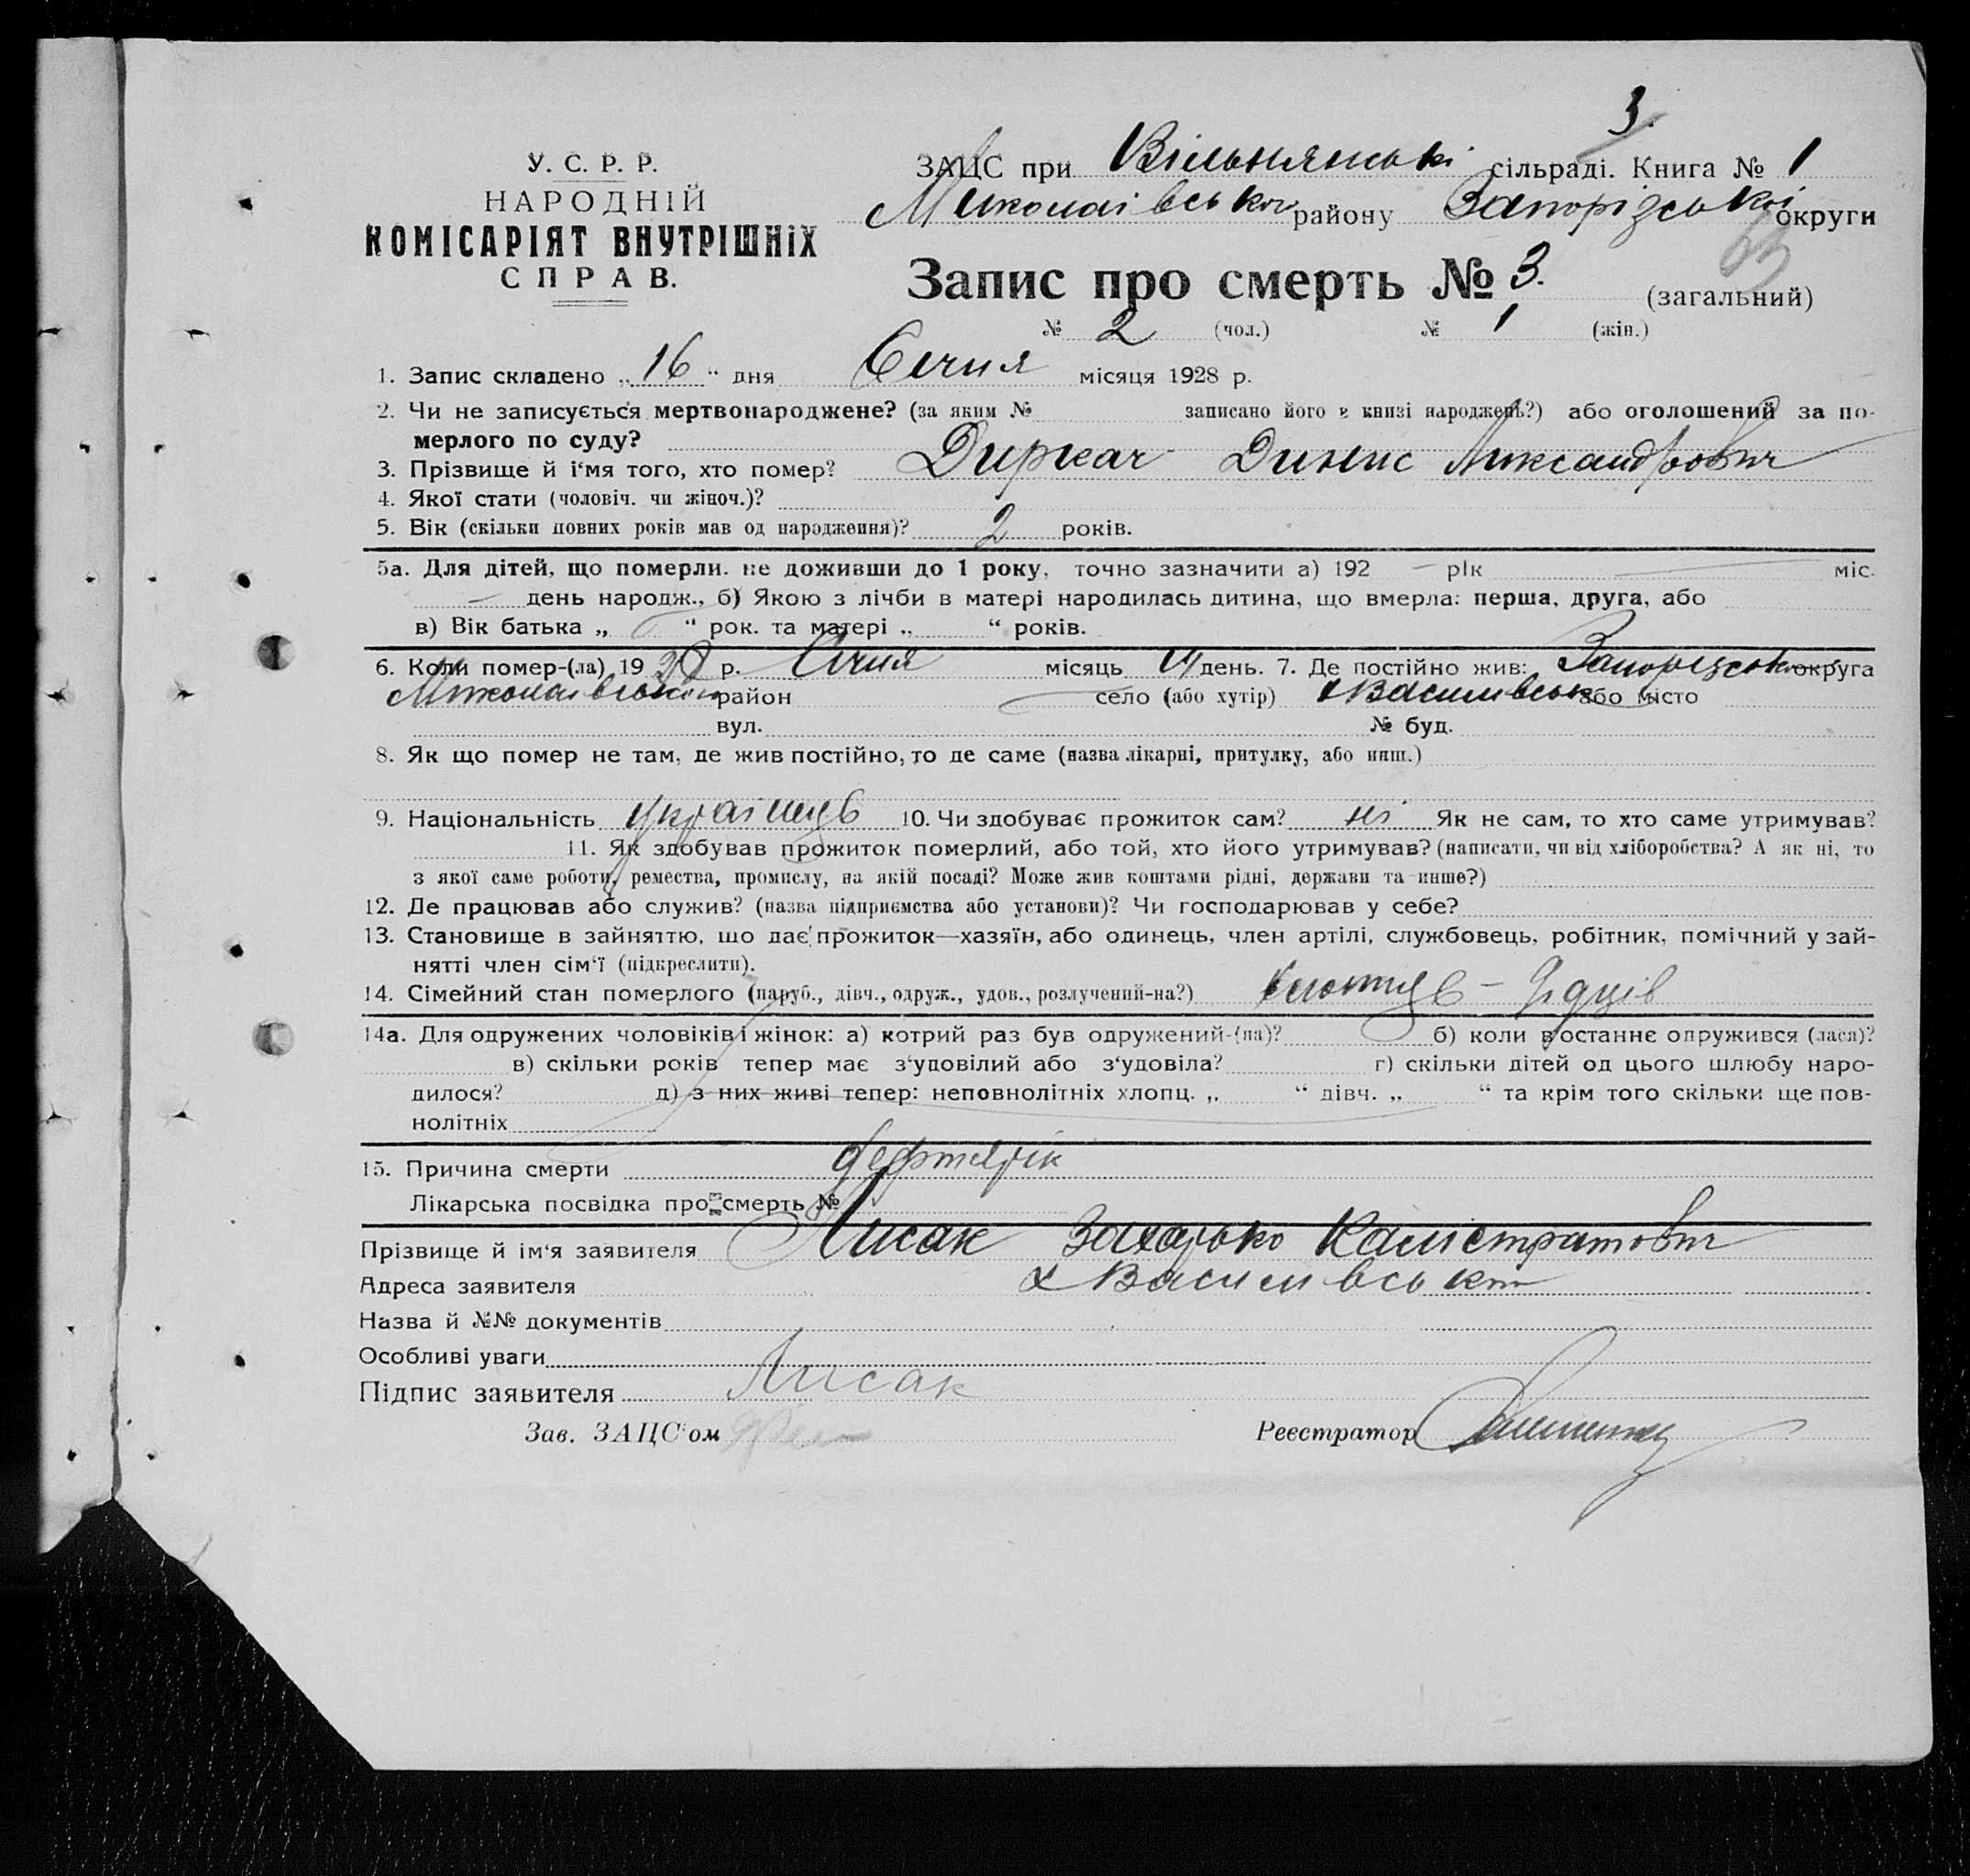 3.
У. С. Р. Р.
НАРОДНІЙ
КОМІСАРІЯТ ВНУТРІШНІХ
СПРАВ.
ЗАЦС при Вільнянські сільраді. Книга № 1
Миколаівськог району Запорізськоі округи
63
Запис про смерть № 3. (загальний)
№ 2 (чол.) № 1 (жін.)
1. Запис складено „16“ дня Січня місяця 1928 р.
2. Чи не записується мертвонароджене? (за яким № записано його в книзі народжень?) або оголошений за по-
мерлого по суду?
3. Прізвище й і‘мя того, хто помер? Диркач Динис Ликсандрович
4. Якої стати (чоловіч. чи жіноч.)?
5. Вік (скільки повних років мав од народження)? 2 років.
5а. Для дітей, що померли. не доживши до 1 року, точно зазначити а) 192 — рік — міс.
— день народж., б) Якою з лічби в матері народилась дитина, що вмерла: перша, друга, або
в) Вік батька „ “ рок. та матері „ “ років.
6. Коли помер-(ла) 1928 р. Січня місяць день. 7. Де постійно жив: округа
район село (або хутір) х Василивськ або місто
вул. № буд.
8. Як що помер не там, де жив постійно, то де саме (назва лікарні, притулку, або инш.)
9. Національність украінець 10. Чи здобуває прожиток сам? ні Як не сам, то хто саме утримував?
11. Як здобував прожиток померлий, або той, хто його утримував? (написати, чи від хліборобства? А як ні, то
з якої саме роботи, ремества, промислу, на якій посаді? Може жив коштами рідні, держави та инше?)
12. Де працював або служив? (назва підприємства або установи)? Чи господарював у себе?
13. Становище в зайняттю, що дає прожиток—хазяїн, або одинець, член артілі, службовець, робітник, помічний у зай-
нятті член сім‘ї (підкреслити).
14. Сімейний стан померлого (паруб., дівч., одруж., удов., розлучений-на?)
14а. Для одружених чоловіків і жінок: а) котрий раз був одружений-(на)? б) коли востаннє одружився (лася)?
в) скільки років тепер має з‘удовілий або з‘удовіла? г) скільки дітей од цього шлюбу наро-
дилося? д) з них живі тепер: неповнолітніх хлопц. „ “ дівч. „ “ та крім того скільки ще пов-
нолітніх
15. Причина смерти
Лікарська посвідка про смерть №
Прізвище й ім‘я заявителя Лисак Захарько Калистратович
Адреса заявителя х Василивськ
Назва й №№ документів
Особливі уваги
Підпис заявителя Лисак
Зав. ЗАЦС‘ом Реєстратор